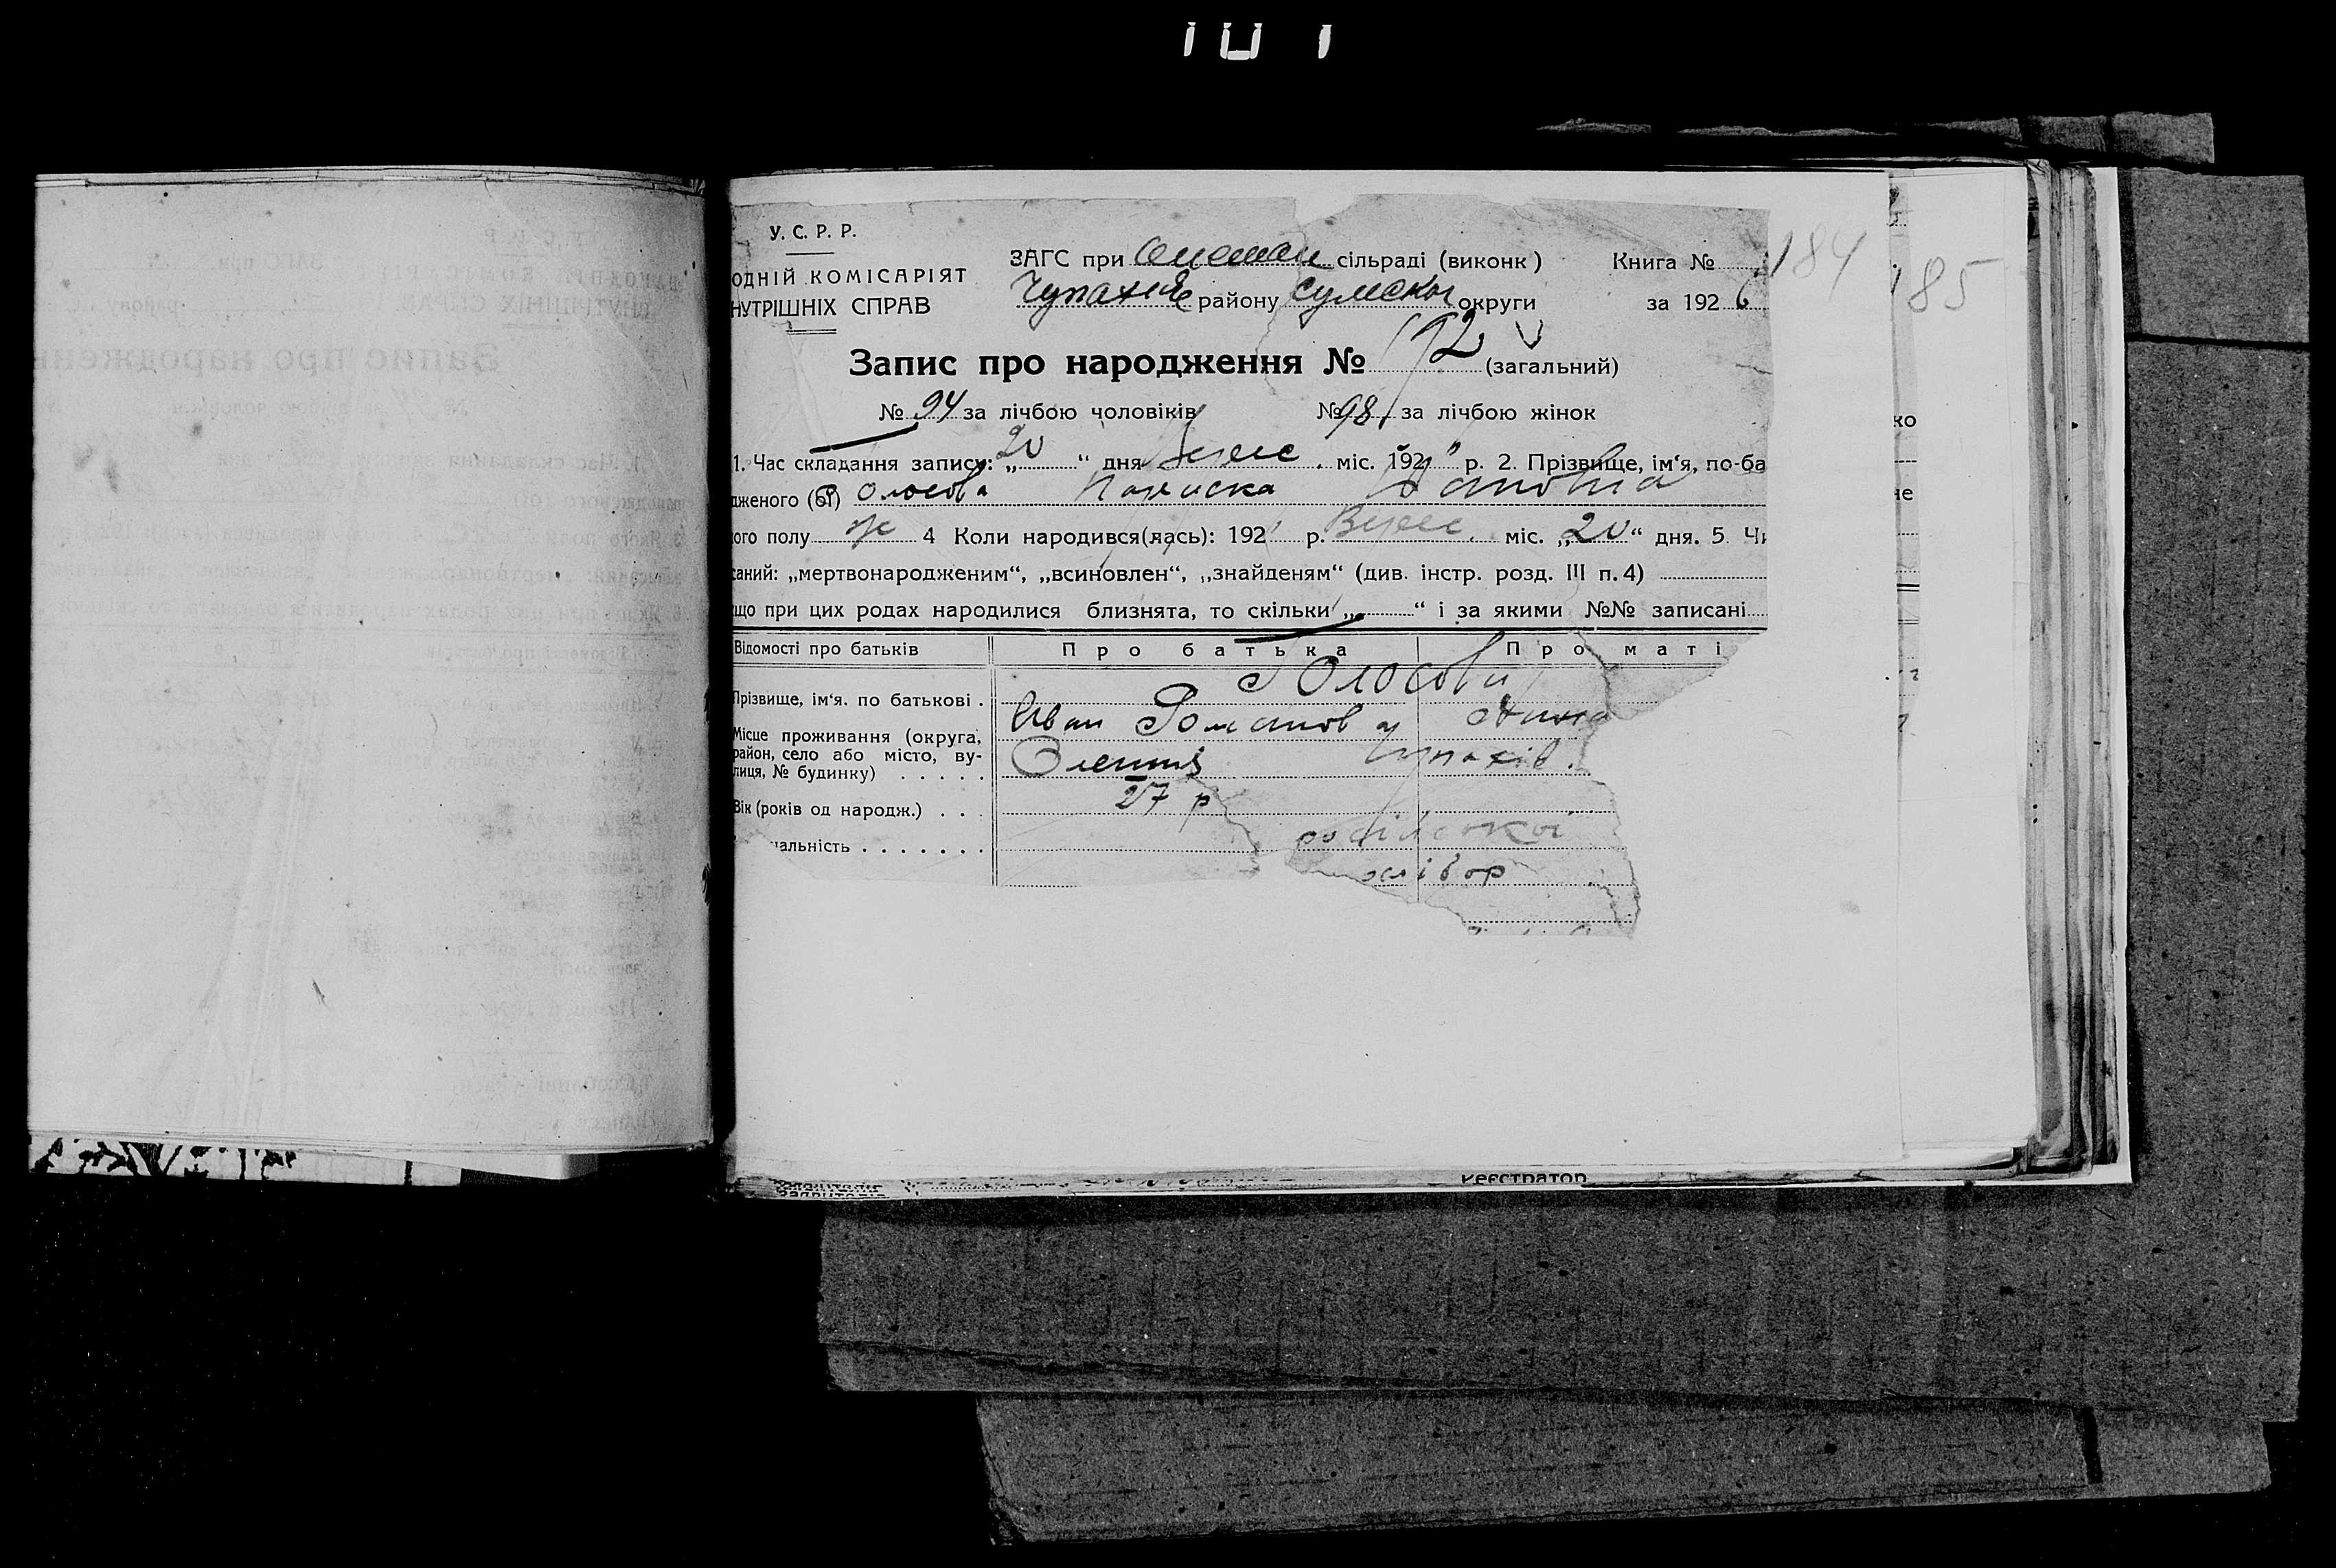 У. С. Р. Р.
ОДНІЙ КОМІСАРІЯТ
НУТРІШНІХ СПРАВ
ЗАГС при сільраді (виконк )
Книга №
184
185
Чупахів району Сумської округи
за 192 6
Запис про народження № 192 (загальний)
№ 94 за лічбою чоловіків № 98 за лічбою жінок
1. Час складання запису: „ 20 “ дня Верес . міс. 192 р. 2. Прізвище, ім‘я, по-ба
дженого (ої) Голосова Параска Івановна
ого полу ж 4 Коли народився(лась): 192 р. Верес . міс. „ 20 “ дня. 5. Чи
саний: „мертвонародженим“, „всиновлен“, „знайденям“ (див. інстр. розд. III п. 4)
що при цих родах народилися близнята, то скільки „ “ і за якими №№ записані
Відомості про батьків
Про батька
Про маті
Прізвище, ім‘я. по батькові .
Голосови
Іван Романов
Місце проживання (округа,
район, село або місто, ву-
лиця, № будинку) . . . . .
Чупахів.
Вік (років од народж.) . . .
27 р
альність . . . . . . .
ко
не
Реєстратор